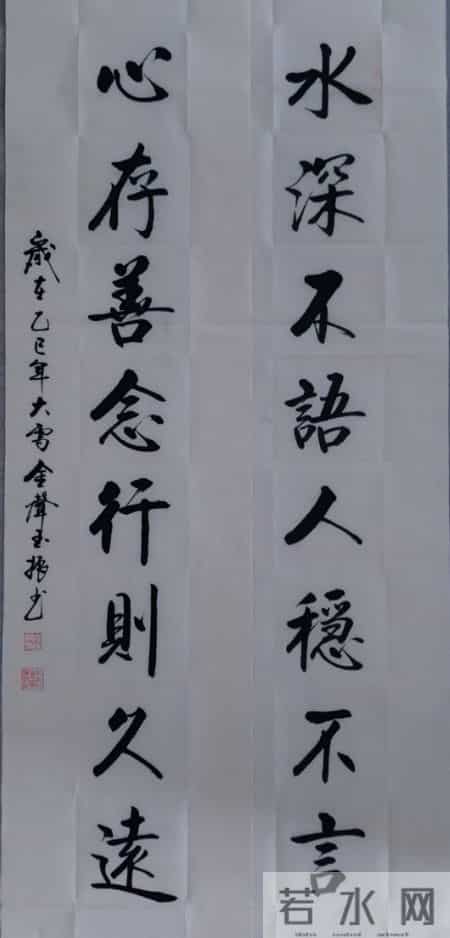 水深不語人穩不言
心存善念行則久遠
歲在乙巳年大雪金聲玉振書
若水网